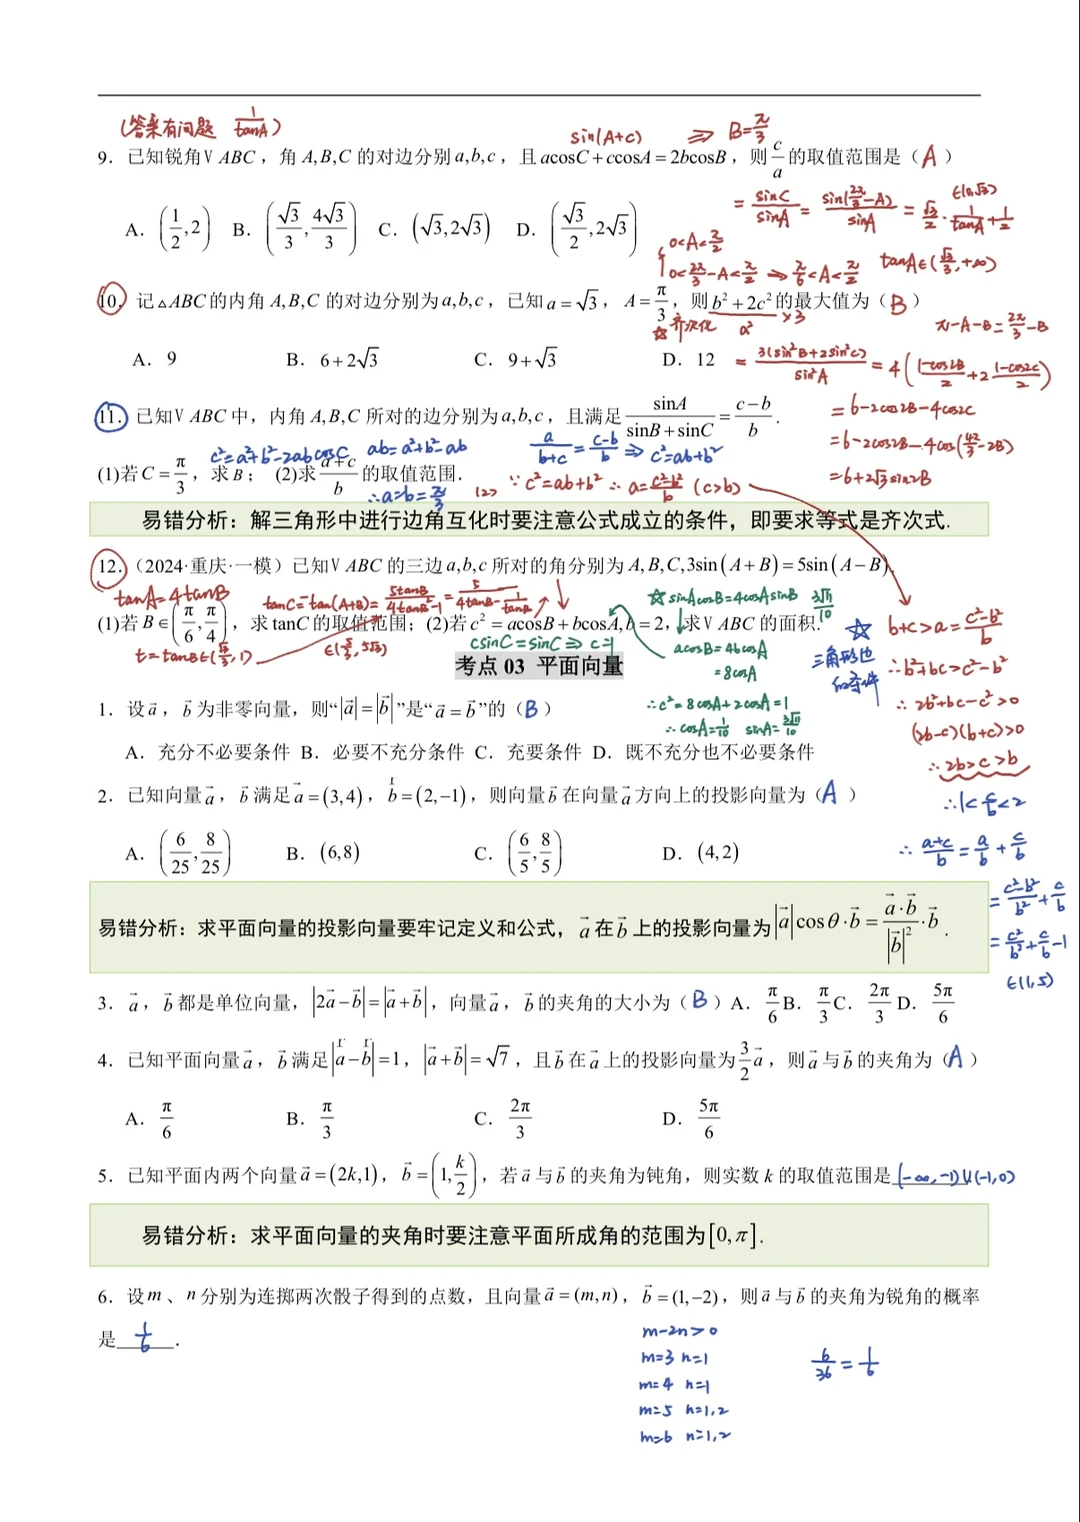 (答案有问题 1/tanA)
sin(A+C) ⇒ B=π/3
9．已知锐角V ABC，角 A,B,C 的对边分别 a,b,c，且 acosC+ccosA=2bcosB，则 c/a 的取值范围是（A）
= sinC/sinA = sin(2π/3-A)/sinA = √3/2·1/tanA+1/2 ∈(0,√3)
A．(1/2,2) B．(√3/3,4√3/3) C．(√3,2√3) D．(√3/2,2√3)
0<A<π/2
0<2π/3-A<π/2 ⇒ π/6<A<π/2 tanA∈(√3/3,+∞)
10．记△ABC的内角 A,B,C 的对边分别为a,b,c，已知 a=√3，A=π/3，则b²+2c²的最大值为（B）
☆齐次化 a² ×3 π-A-B=2π/3-B
A．9 B．6+2√3 C．9+√3 D．12
= 3(sin²B+2sin²C)/sin²A = 4(1-cos2B/2+2 1-cos2C/2)
=6-2cos2B-4cos2C
=6-2cos2B-4cos(4π/3-2B)
=6+2√3sin2B
11．已知V ABC 中，内角 A,B,C 所对的边分别为a,b,c，且满足 sinA/(sinB+sinC)=(c-b)/b．
c²=a²+b²-2abcosC ab=a²+b²-ab a/(b+c)=(c-b)/b ⇒ c²=ab+b²
(1)若 C=π/3，求 B； (2)求 (a+c)/b 的取值范围．
∴a=b=π/3 (2) ∵c²=ab+b² ∴a=(c²-b²)/b (c>b)
易错分析：解三角形中进行边角互化时要注意公式成立的条件，即要求等式是齐次式.
12．（2024·重庆·一模）已知V ABC 的三边 a,b,c 所对的角分别为 A,B,C,3sin(A+B)=5sin(A-B)．
tanA=4tanB tanC=-tan(A+B)= 5tanB/(4tan²B-1) = 5/(4tanB-1/tanB) ☆sinAcosB=4cosAsinB 3√11/10
(1)若 B∈(π/6,π/4)，求 tanC 的取值范围；(2)若 c²=acosB+bcosA,b=2，求V ABC 的面积．
t=tanB∈(√3/3,1) ∈(5/3,5√3) csinC=sinC⇒c=1 acosB=4bcosA
=8cosA
☆ 三角形也
有条件
b+c>a=(c²-b²)/b
∴b²+bc>c²-b²
∴2b²+bc-c²>0
(2b-c)(b+c)>0
∴2b>c>b
∴1<c/b<2
∴(a+c)/b=a/b+c/b
=(c²-b²)/b²+c/b
=c²/b²+c/b-1
∈(1,5)
考点 03 平面向量
1．设a，b为非零向量，则“|a|=|b|”是“a=b”的（B）
∴c²=8cosA+2cosA=1
∴cosA=1/10 sinA=3√11/10
A．充分不必要条件 B．必要不充分条件 C．充要条件 D．既不充分也不必要条件
2．已知向量a，b满足a=(3,4)，b=(2,-1)，则向量b在向量a方向上的投影向量为（A）
A．(6/25,8/25) B．(6,8) C．(6/5,8/5) D．(4,2)
易错分析：求平面向量的投影向量要牢记定义和公式，a在b上的投影向量为|a|cosθ·b=(a·b)/|b|²·b．
3．a，b都是单位向量，|2a-b|=|a+b|，向量a，b的夹角的大小为（B）A．π/6 B．π/3 C．2π/3 D．5π/6
4．已知平面向量a，b满足|a-b|=1，|a+b|=√7，且b在a上的投影向量为3/2a，则a与b的夹角为（A）
A．π/6 B．π/3 C．2π/3 D．5π/6
5．已知平面内两个向量a=(2k,1)，b=(1,k/2)，若a与b的夹角为钝角，则实数 k 的取值范围是(-∞,-1)∪(-1,0)
易错分析：求平面向量的夹角时要注意平面所成角的范围为[0,π].
6．设m、n分别为连掷两次骰子得到的点数，且向量a=(m,n)，b=(1,-2)，则a与b的夹角为锐角的概率
是 1/6 ．
m-2n>0
m=3 n=1
m=4 n=1
m=5 n=1,2
m=6 n=1,2
6/36=1/6